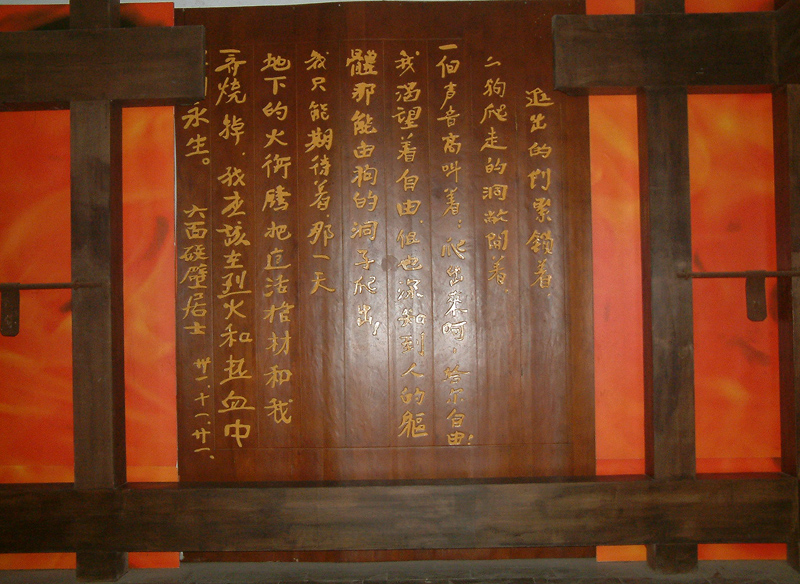 進出的門紧鎖着，
狗爬走的洞敞開着，
一個声音高叫着：爬出來呵，給尔自由！
我渴望着自由，但也深知到人的軀
體那能由狗的洞子爬出！
我只能期待着，那一天
地下的火衝腾，把這活棺材和我
一齊烧掉，我应該在烈火和热血中
永生。
六面碰壁居士 卅一、十一、廿一、